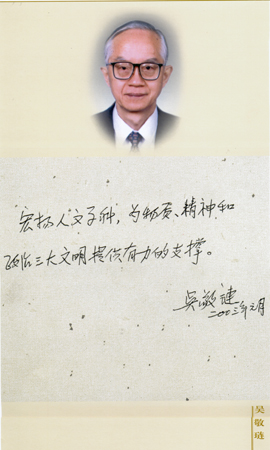 宏扬人文学科，为物质、精神和
政治三大文明提供有力的支撑。
吴敬琏
二〇〇三年元月
吴敬琏